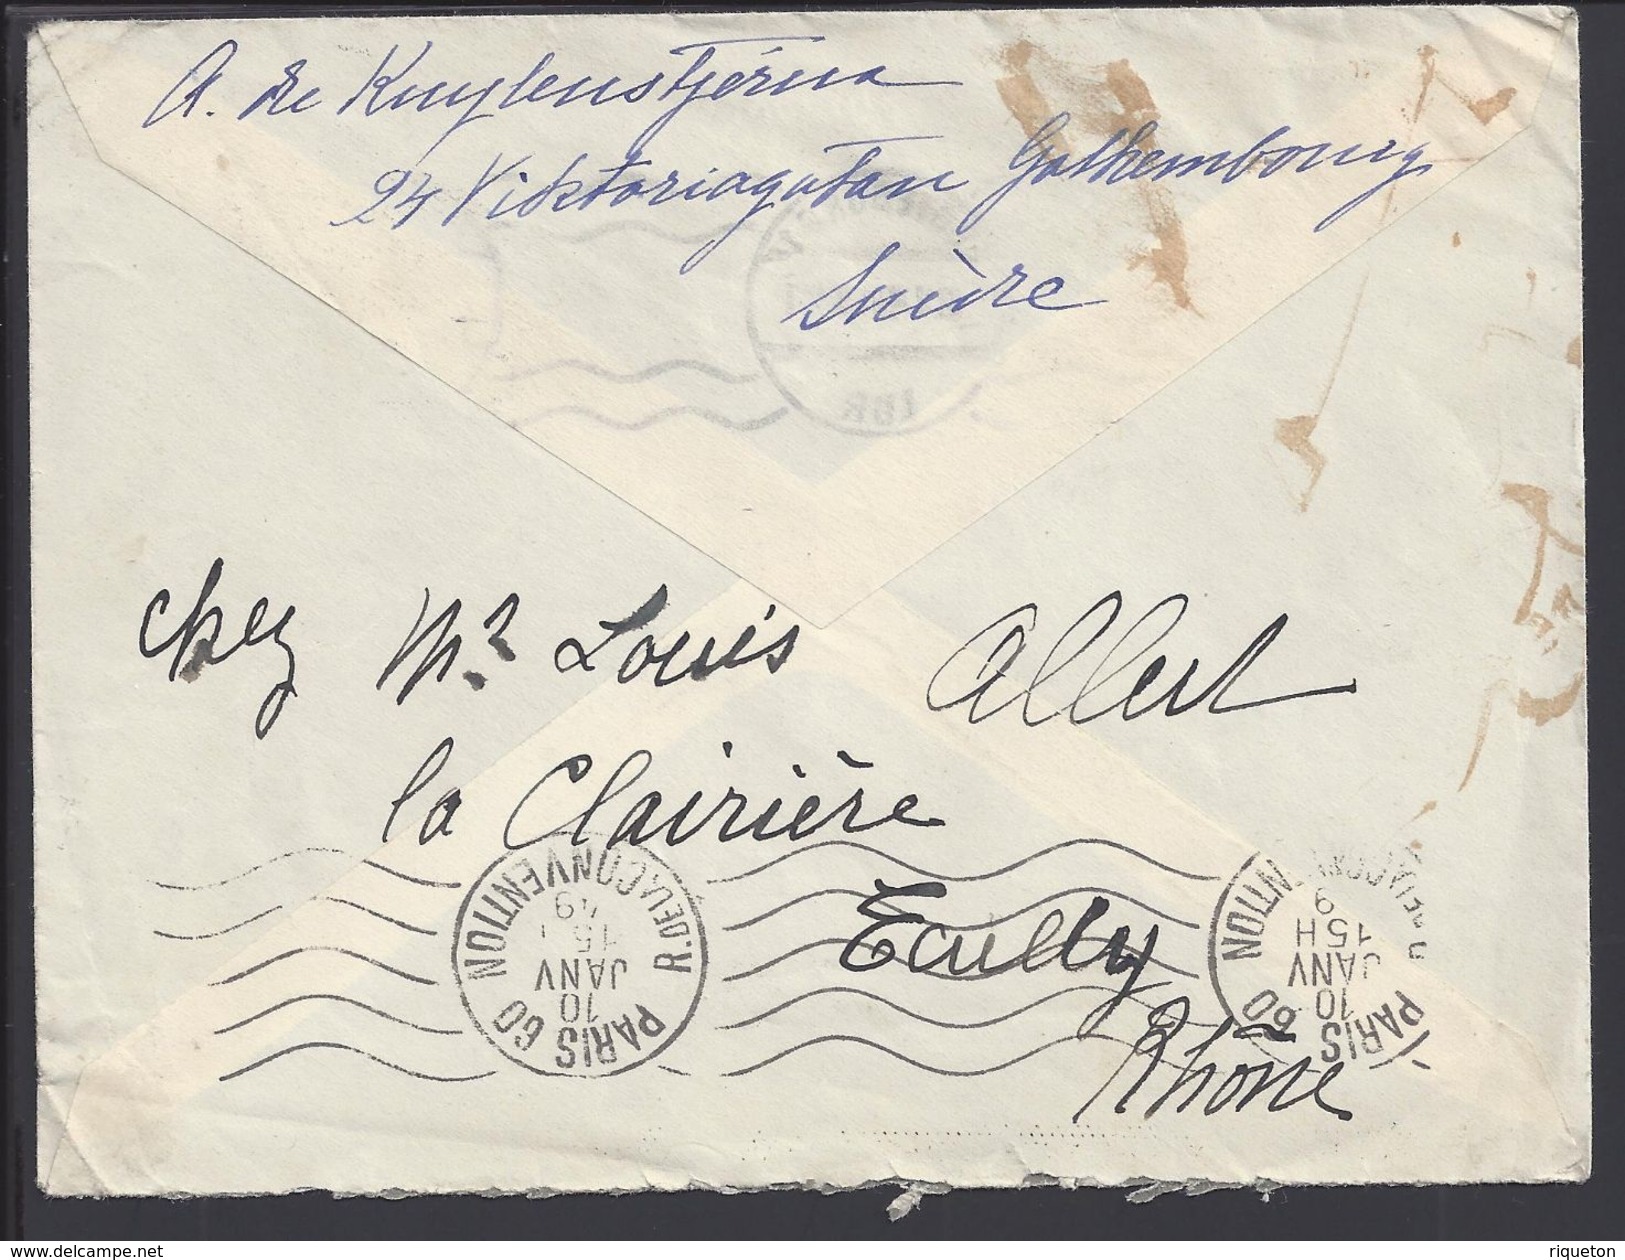 A. de Kuylenstjérna
24 Viktoriagatan Gothembourg
Suède
chez Mr Louis Allert
la Clairière
Ecully
Rhône
PARIS 60 R. DE LA CONVENTION
15H
10
JANV
49
PARIS 60
15H
10
JANV
www.delcampe.net
riqueton